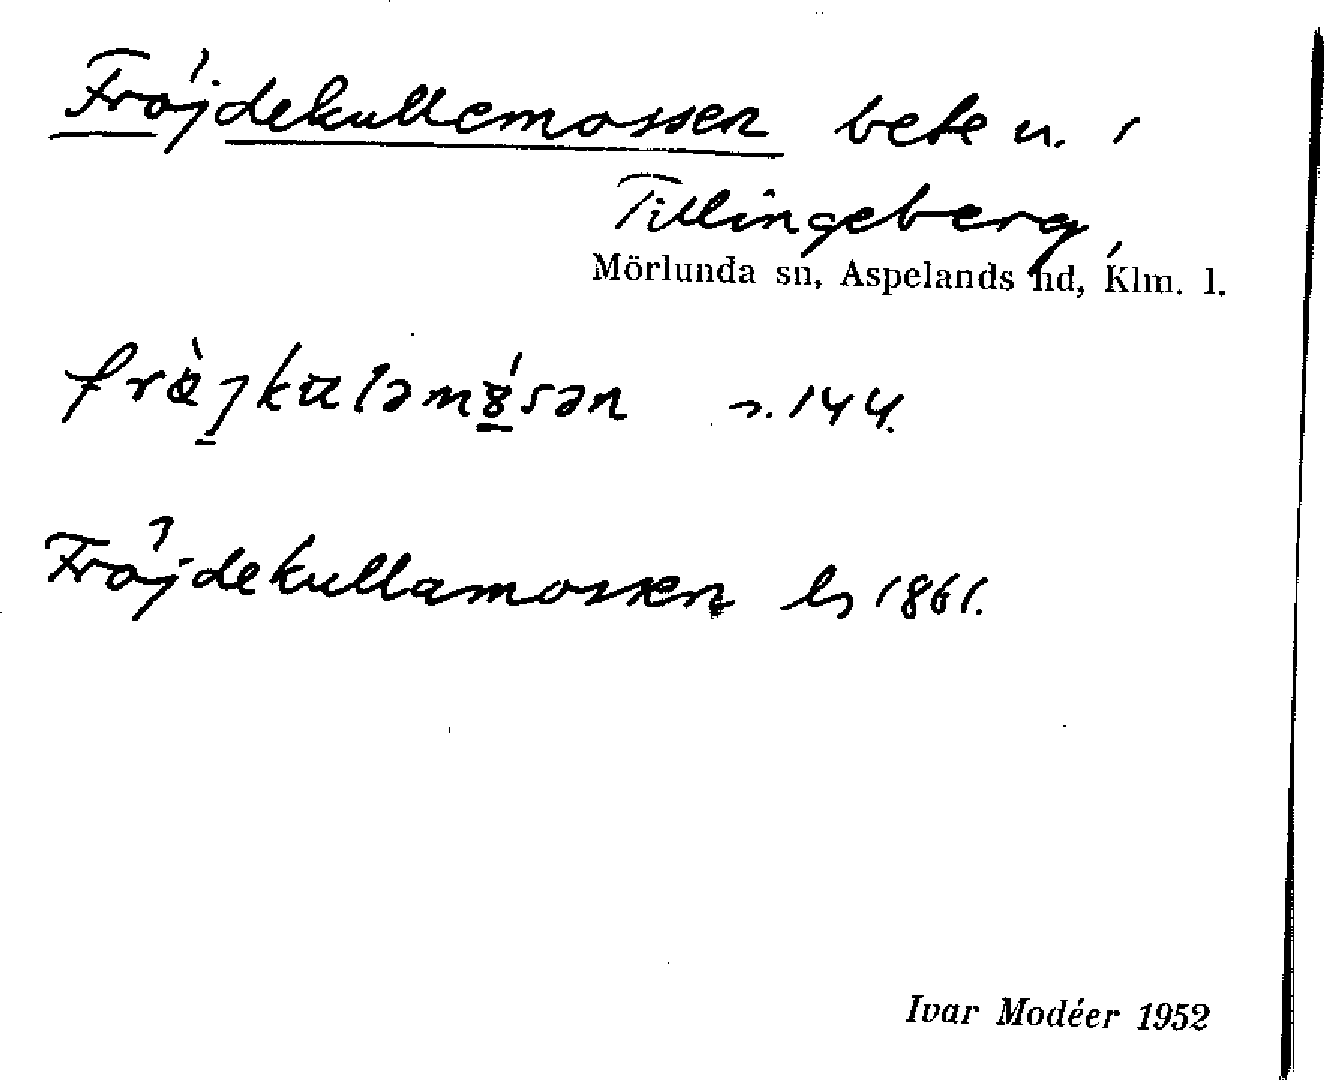 Fröjdekullemossen bete n. i
Tillingeberg,
Mörlunda sn, Aspelands hd, Klm. l.
s. 144.
Fröjdekullamossen ls 1861.
Ivar Modéer 1952